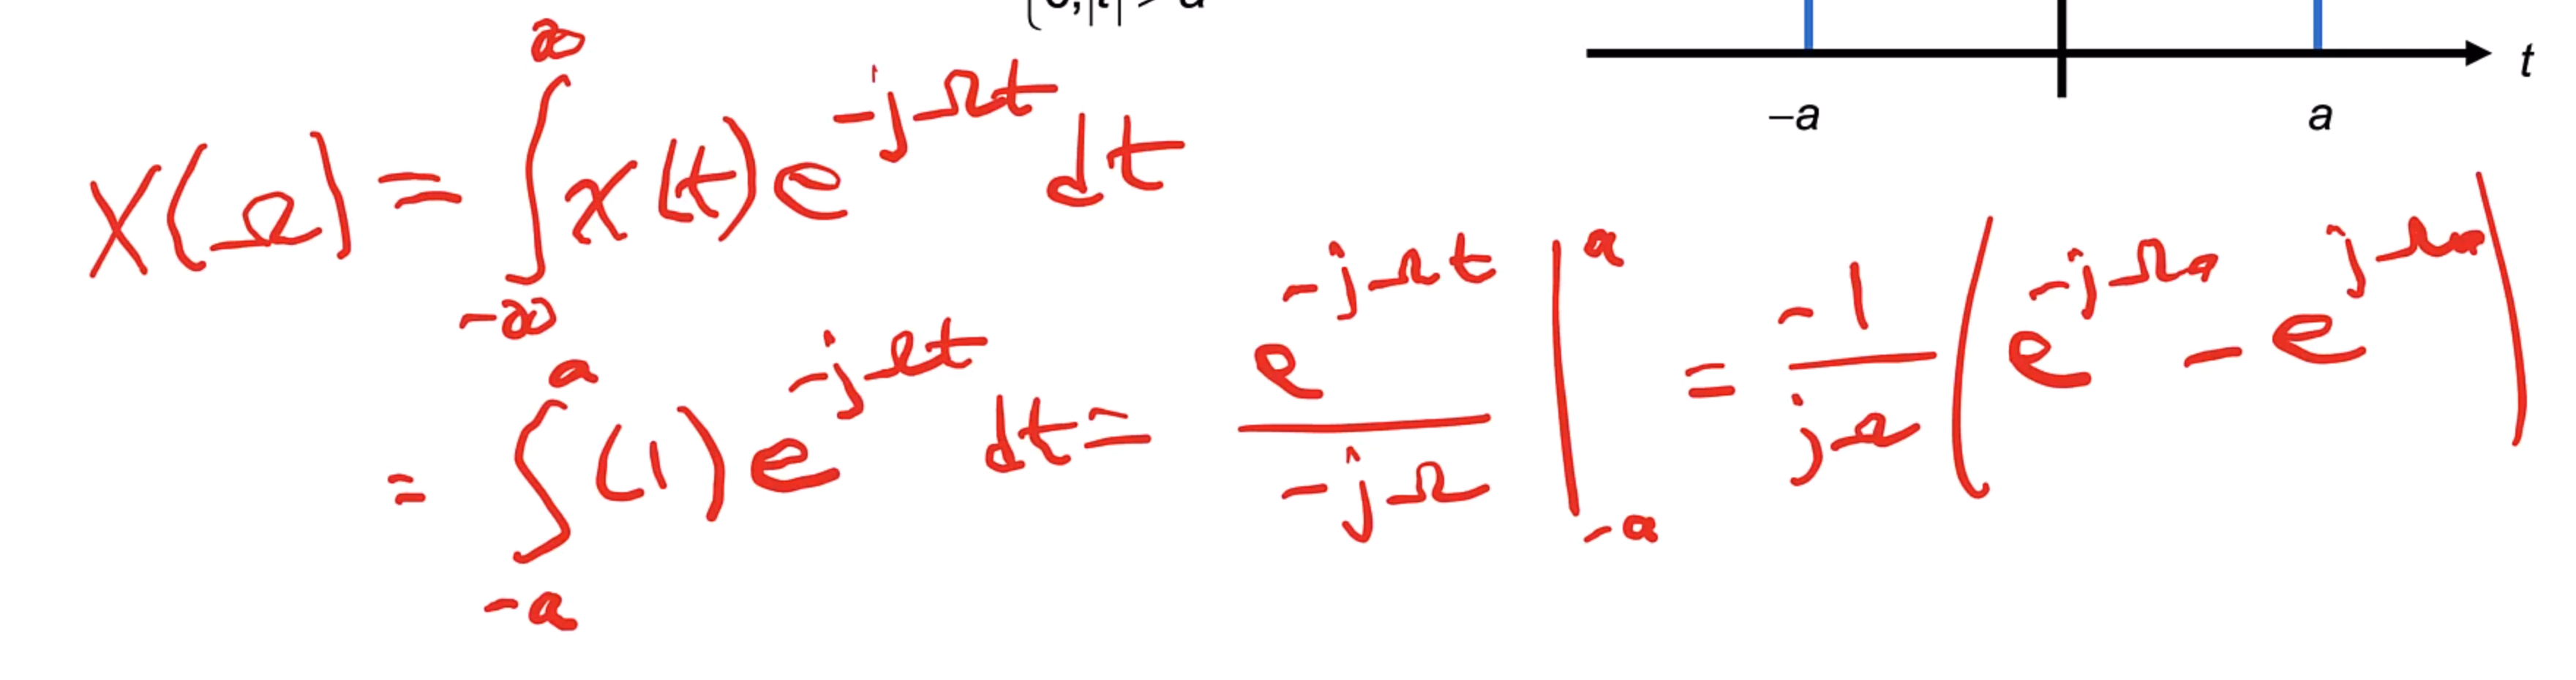 0, |t| > a
t
–a a
X(Ω) = ∫_{-∞}^{∞} x(t) e^{-jΩt} dt
= ∫_{-a}^{a} (1) e^{-jΩt} dt = e^{-jΩt} / -jΩ |_{-a}^{a} = -1 / jΩ (e^{-jΩa} - e^{jΩa})